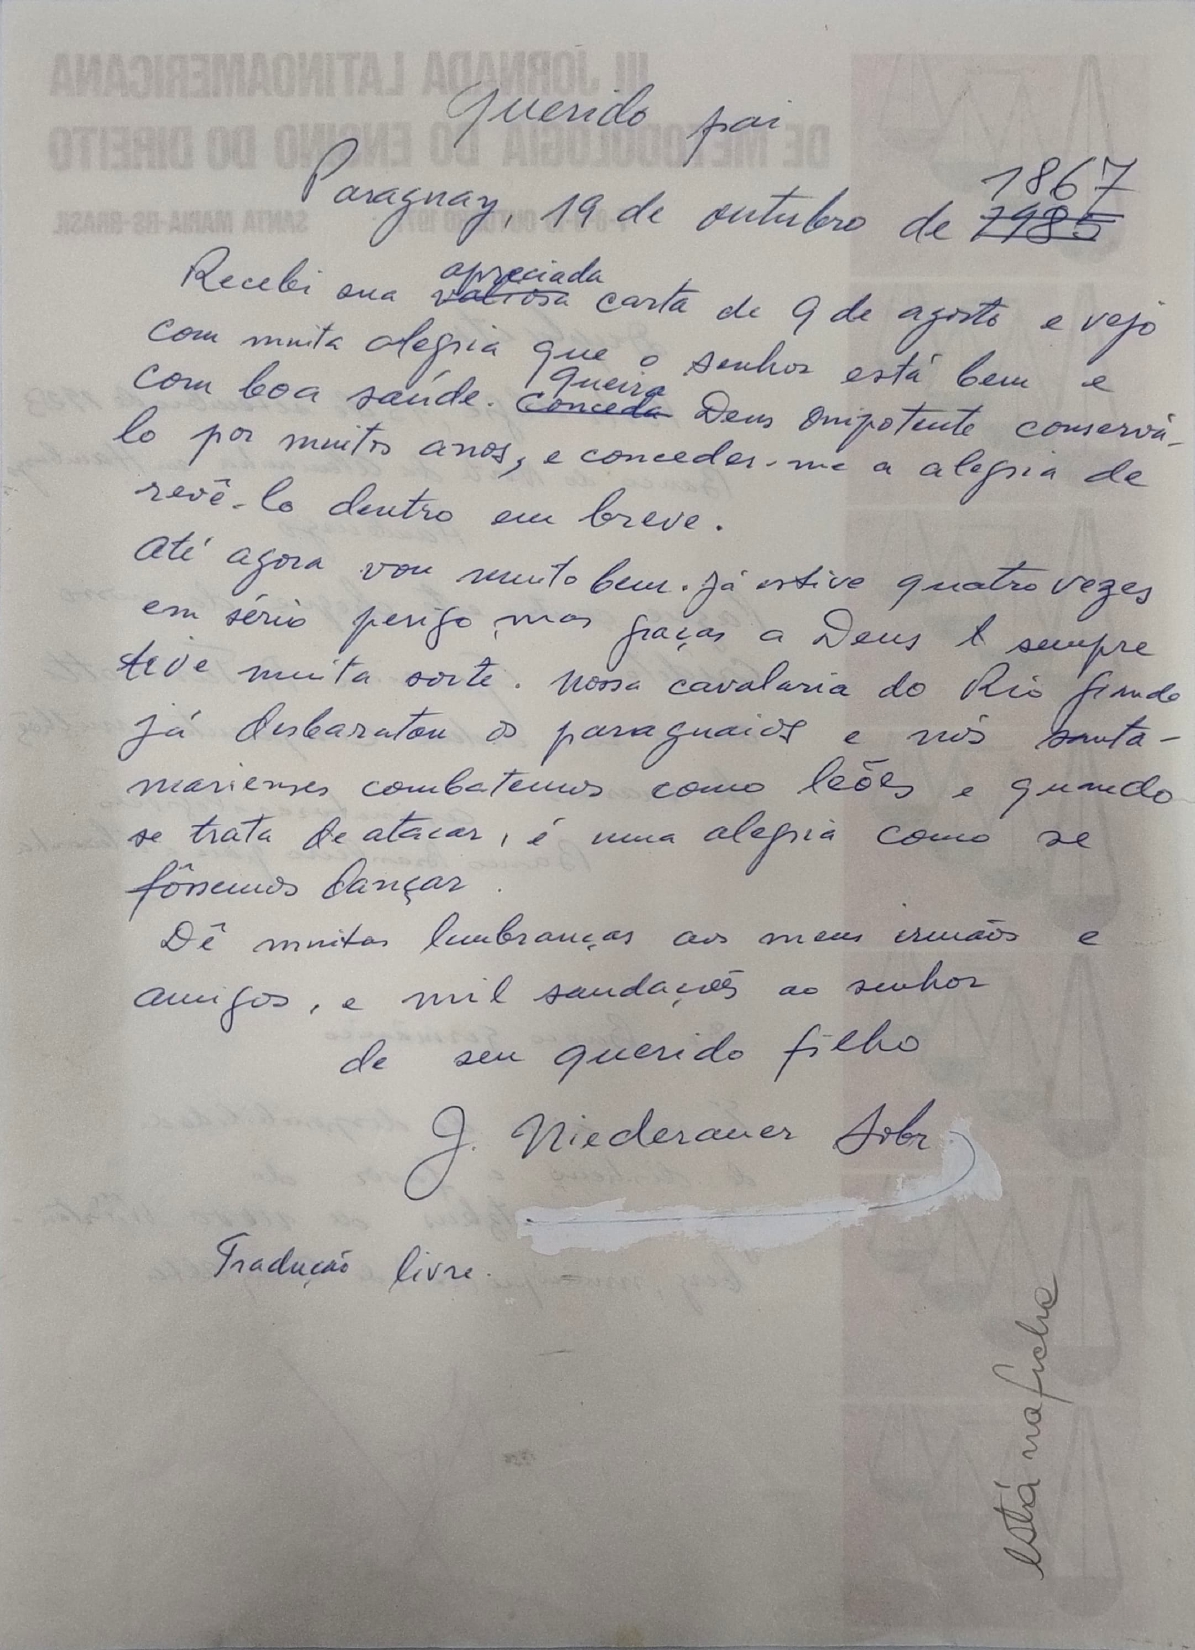 Querido pai
Paraguay, 19 de outubro de 1867
1985
Recebi sua apreciada valiosa carta de 9 de agosto e vejo
com muita alegria que o senhor está bem e
com boa saúde. Queira conceda Deus onipotente conservá-
lo por muitos anos, e conceder-me a alegria de
revê-lo dentro em breve.
Até agora vou muito bem. Já estive quatro vezes
em sério perigo, mas graças a Deus sempre
tive muita sorte. Nossa cavalaria do Rio Grande
já desbaratou os paraguaios e nós santa-
marienses combatemos como leões e quando
se trata de atacar, é uma alegria como se
fôssemos dançar.
Dê muitas lembranças aos meus irmãos e
amigos, e mil saudações ao senhor
de seu querido filho
J. Niederauer Sobr.
Tradução livre.
está na ficha
III JORNADA LATINOAMERICANA
DE METODOLOGIA DO ENSINO DO DIREITO
SANTA MARIA-RS-BRASIL